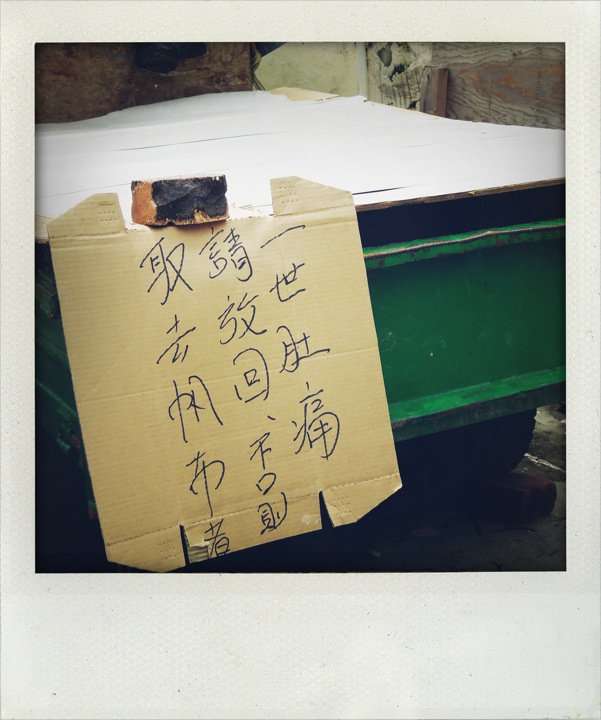 取去帆布者
請放回、否則
一世肚痛